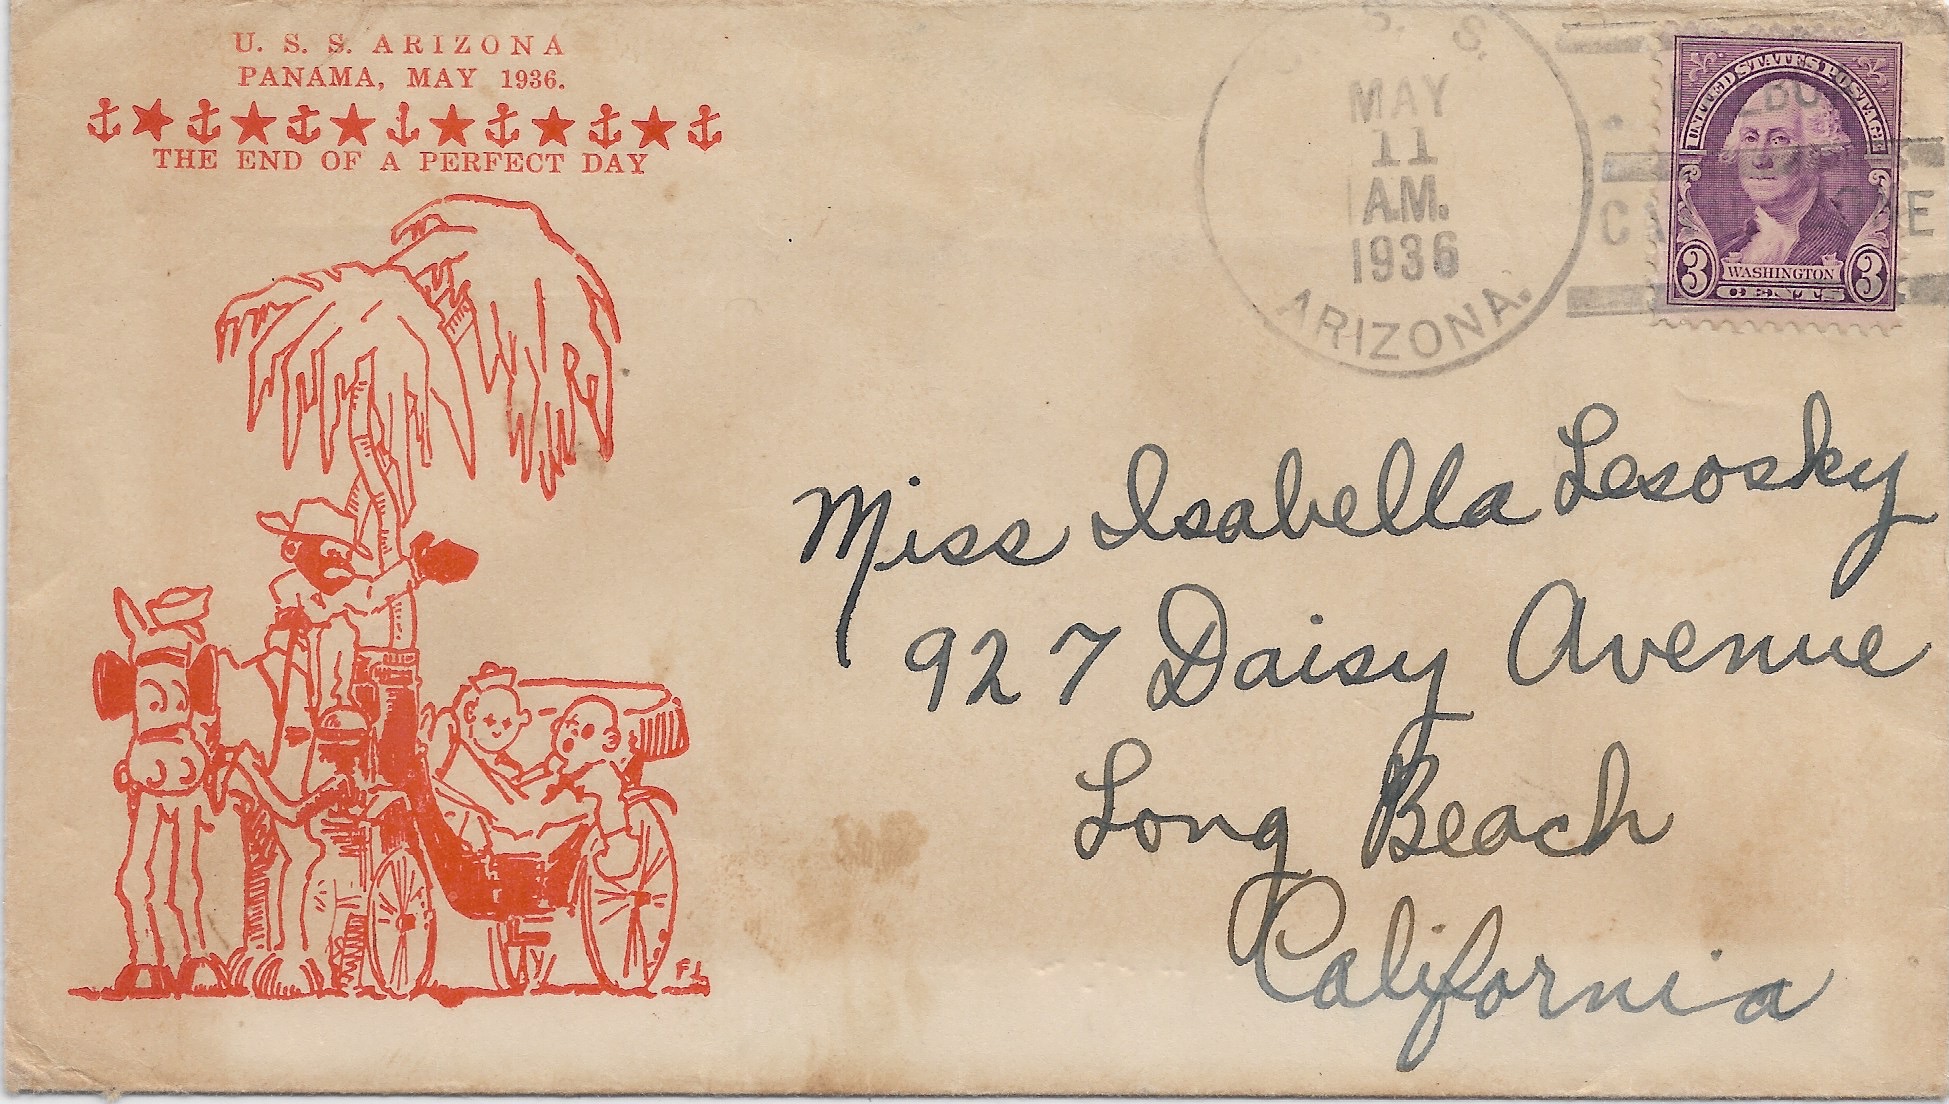 U. S. S. ARIZONA
PANAMA, MAY 1936.
THE END OF A PERFECT DAY
S. S.
MAY
11
A.M.
1936
ARIZONA.
UNITED STATES POSTAGE
3 WASHINGTON 3
CENTS
Miss Isabella Lesosky
927 Daisy Avenue
Long Beach
California
F L